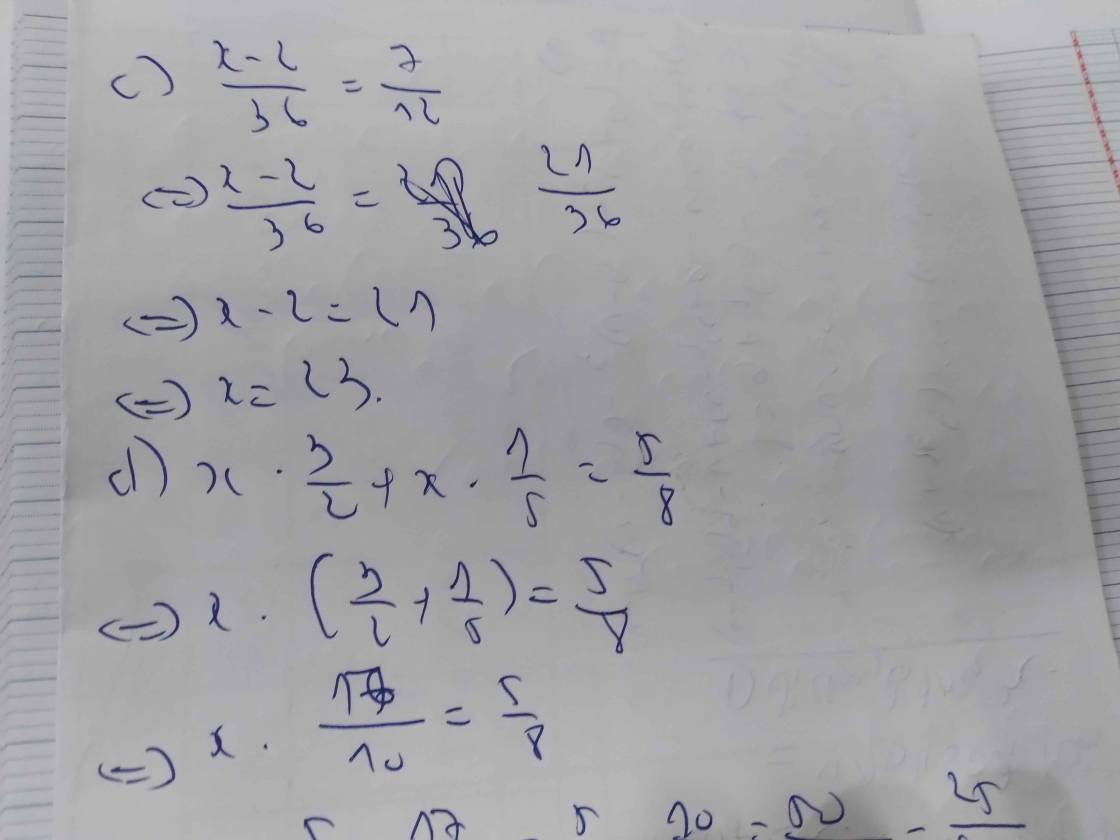 c) \frac{x-2}{36} = \frac{7}{12}
<=> \frac{x-2}{36} = \frac{21}{36}
<=> x - 2 = 21
<=> x = 23.
d) x \cdot \frac{3}{2} + x \cdot \frac{1}{5} = \frac{5}{8}
<=> x \cdot (\frac{3}{2} + \frac{1}{5}) = \frac{5}{8}
<=> x \cdot \frac{17}{10} = \frac{5}{8}